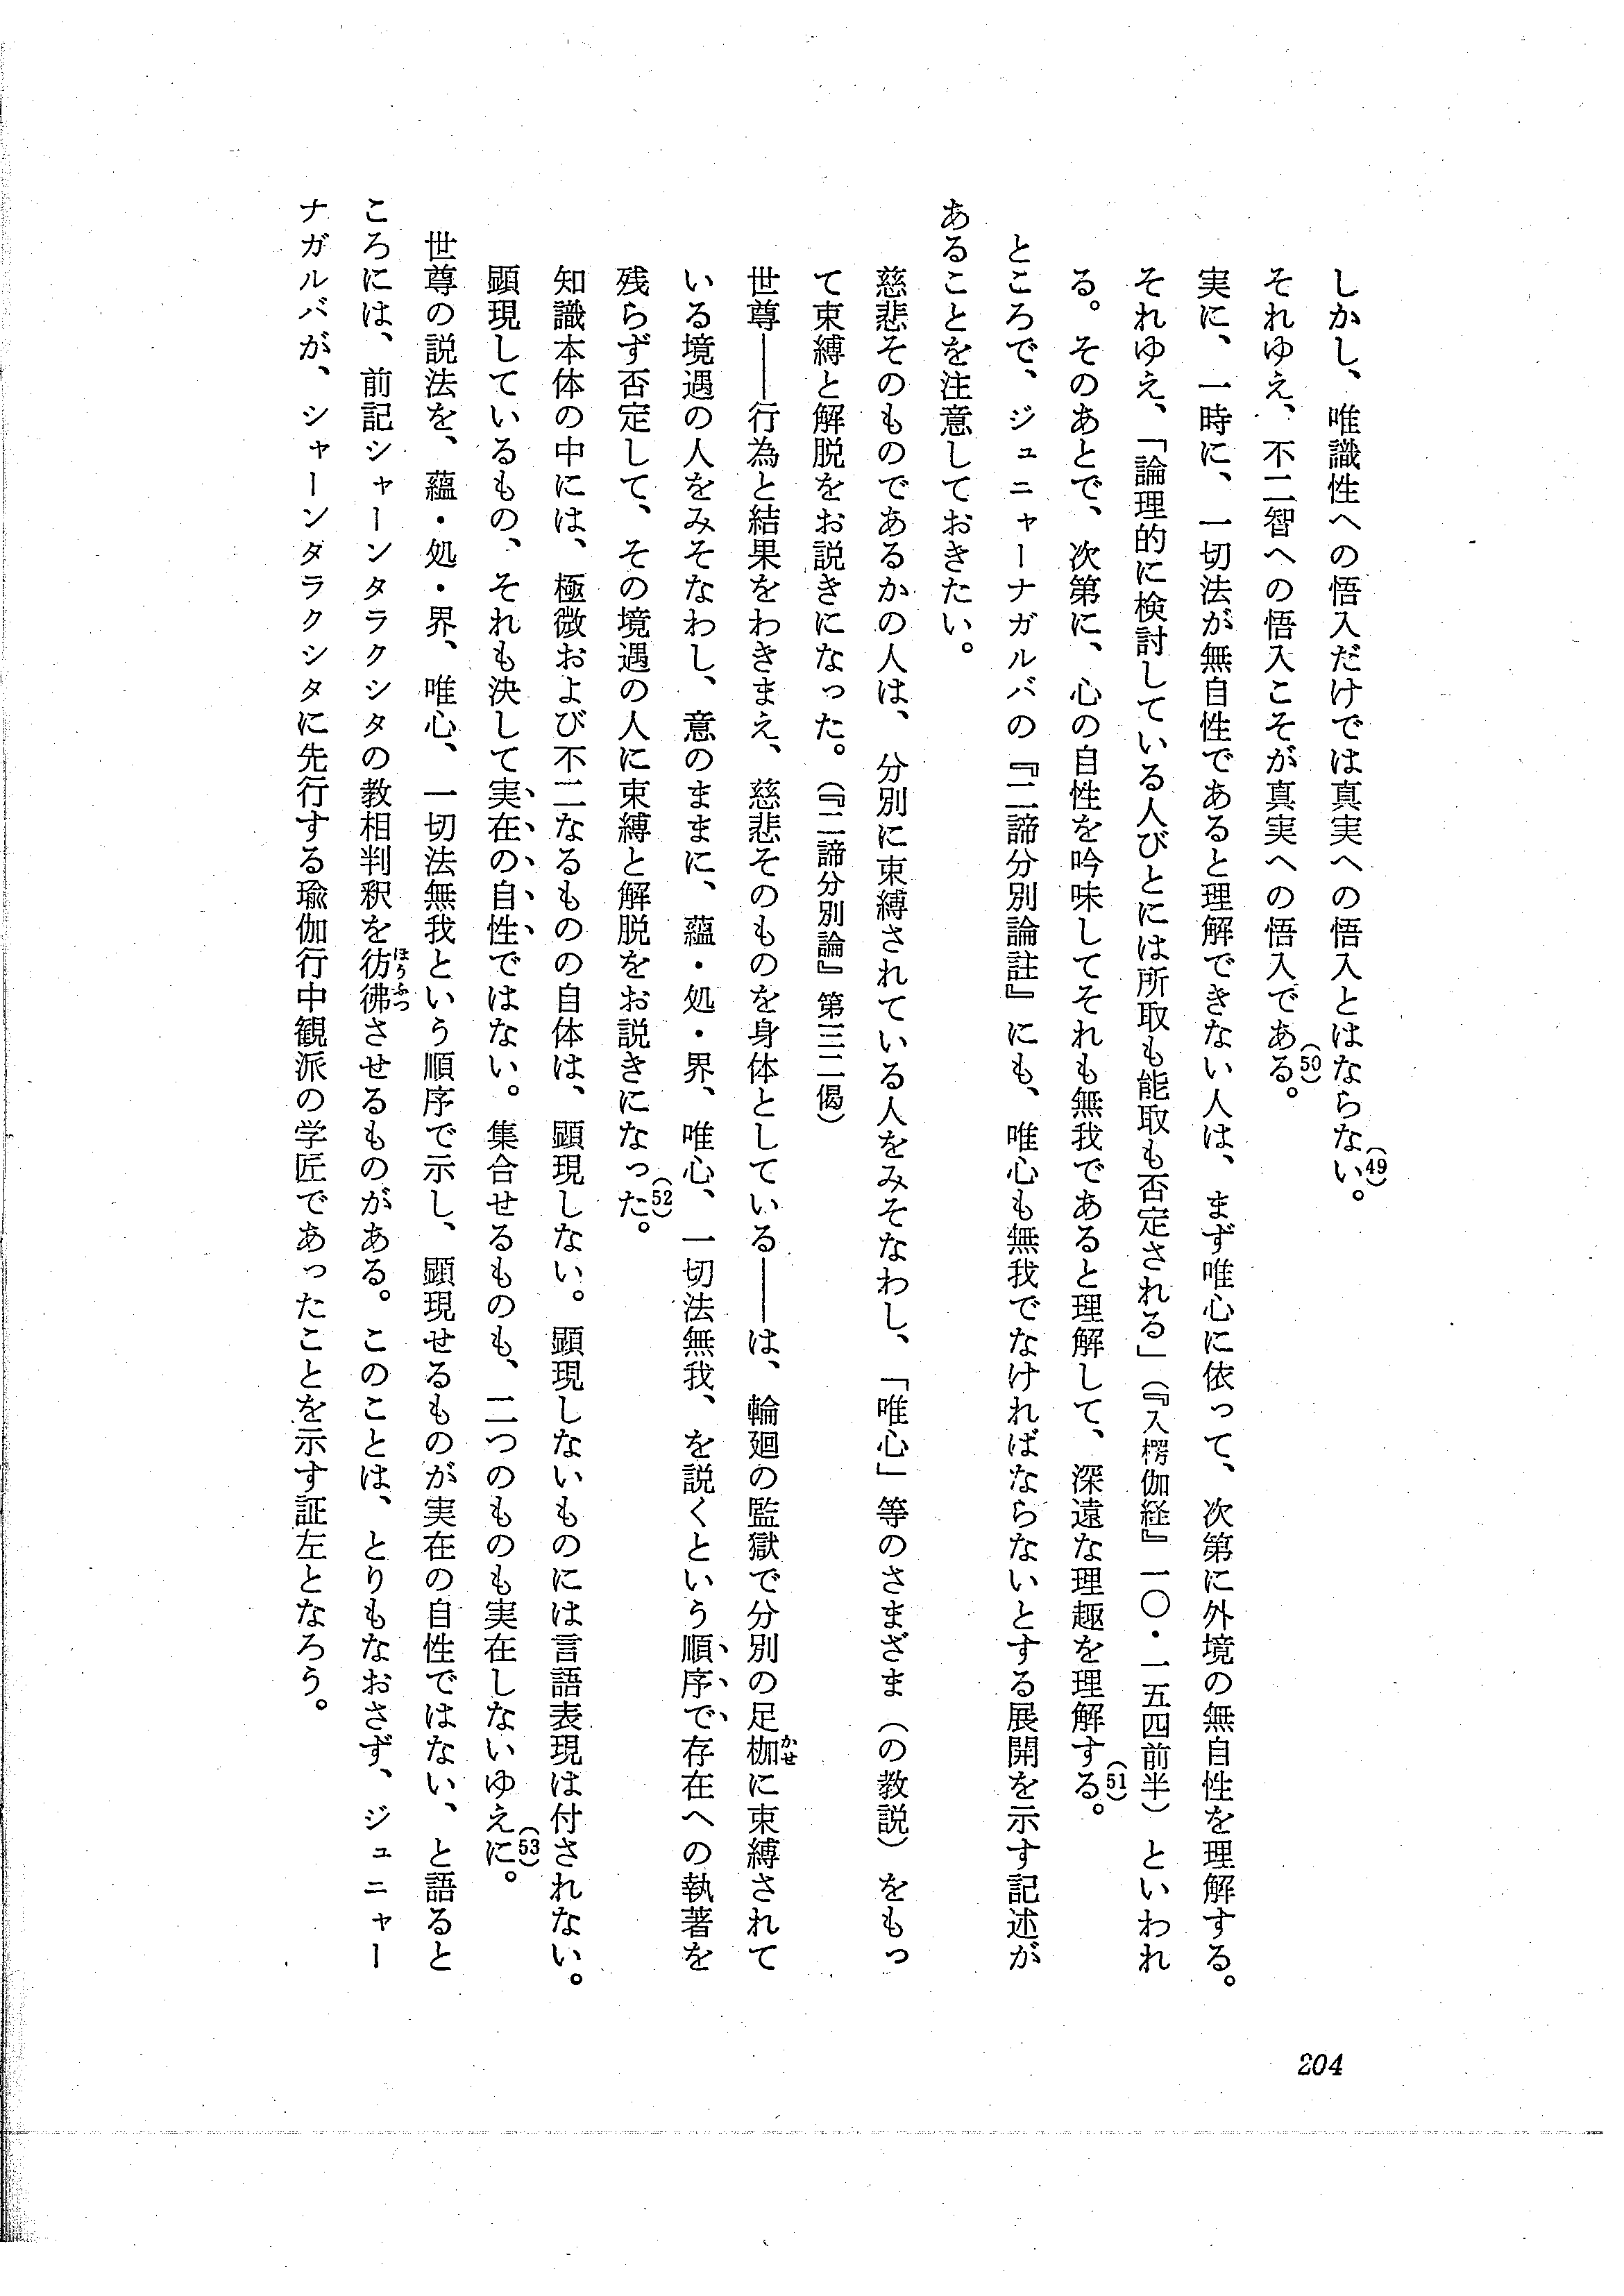 しかし、唯識性への悟入だけでは真実への悟入とはならない(49)。
それゆえ、不二智への悟入こそが真実への悟入である(50)。
実に、一時に、一切法が無自性であると理解できない人は、まず唯心に依って、次第に外境の無自性を理解する。
それゆえ、「論理的に検討している人びとには所取も能取も否定される」(『入楞伽経』一〇・一五四前半)といわれ
る。そのあとで、次第に、心の自性を吟味してそれも無我であると理解して、深遠な理趣を理解する(51)。
ところで、ジュニャーナガルバの『二諦分別論註』にも、唯心も無我でなければならないとする展開を示す記述が
あることを注意しておきたい。
慈悲そのものであるかの人は、分別に束縛されている人をみそなわし、「唯心」等のさまざま(の教説)をもっ
て束縛と解脱をお説きになった。(『二諦分別論』第三二偈)
世尊――行為と結果をわきまえ、慈悲そのものを身体としている――は、輪廻の監獄で分別の足枷かせに束縛されて
いる境遇の人をみそなわし、意のままに、蘊・処・界、唯心、一切法無我、を説くという順序で存在への執著を
残らず否定して、その境遇の人に束縛と解脱をお説きになった(52)。
知識本体の中には、極微および不二なるものの自体は、顕現しない。顕現しないものには言語表現は付されない。
顕現しているもの、それも決して実在の自性ではない。集合せるものも、二つのものも実在しないゆえに(53)。
世尊の説法を、蘊・処・界、唯心、一切法無我という順序で示し、顕現せるものが実在の自性ではない、と語ると
ころには、前記シャーンタラクシタの教相判釈を彷彿ほうふつさせるものがある。このことは、とりもなおさず、ジュニャー
ナガルバが、シャーンタラクシタに先行する瑜伽行中観派の学匠であったことを示す証左となろう。
204